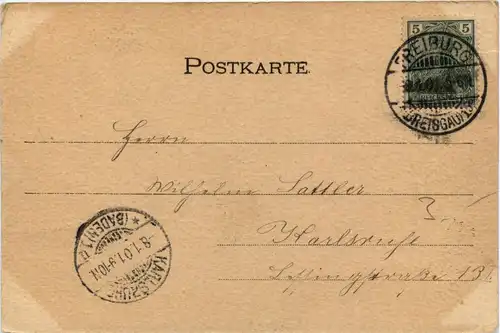 5 5
FREIBURG
8.1.01.
(BREISGAU)
POSTKARTE
Herrn
Wilhelm Sattler
Karlsruhe
Lessingstraße 13
KARLSRUHE
8.1.01.9-10N.
* (BADEN) 1.